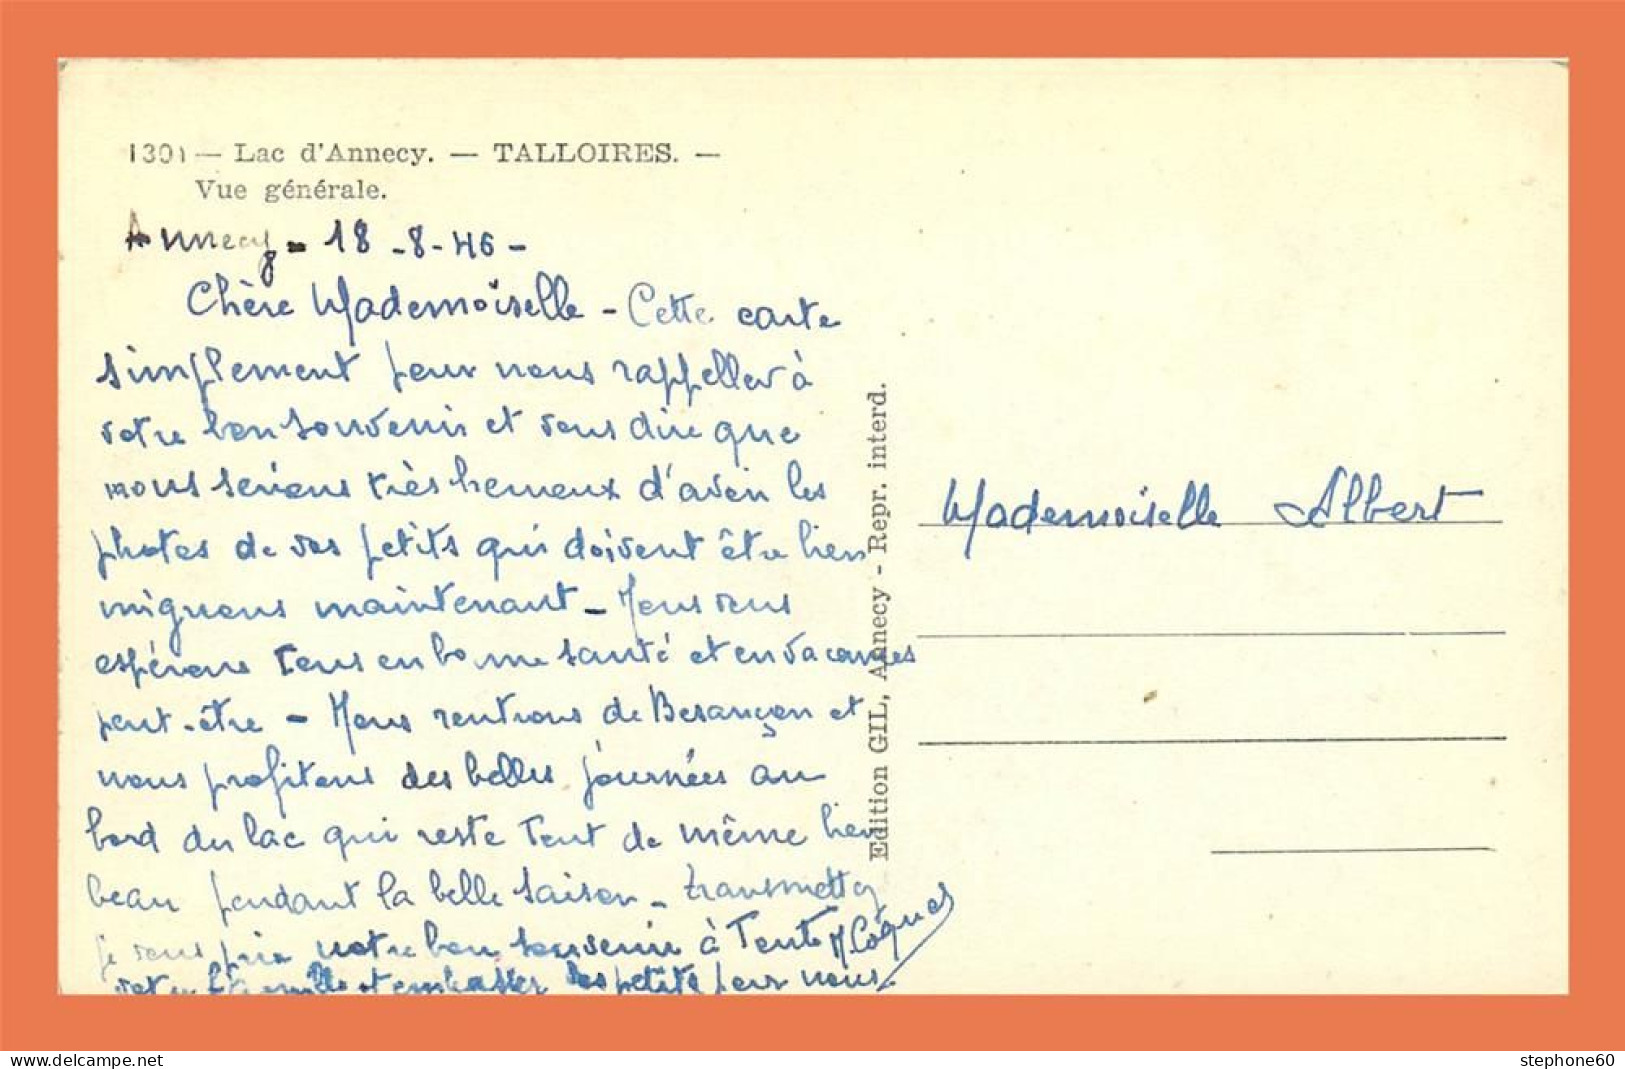 1301 — Lac d'Annecy. — TALLOIRES. —
Vue générale.
Annecy - 18 - 8 - 46 -
Chère Mademoiselle - Cette carte
simplement pour nous rappeller à
votre bon souvenir et vous dire que
nous serions très heureux d'avoir les
photos de vos petits qui doivent être bien
mignons maintenant - Nous vous
espérons tous en bonne santé et en vacances
peut-être - Nous rentrons de Besançon et
nous profitons des belles journées au
bord du lac qui reste tout de même bien
beau pendant la belle saison - transmettez
je vous prie notre bon souvenir à toute
votre famille et embrasser les petits pour nous.
Edition GIL, Annecy - Repr. interd.
Mademoiselle Albert
www.delcampe.net
stephone60